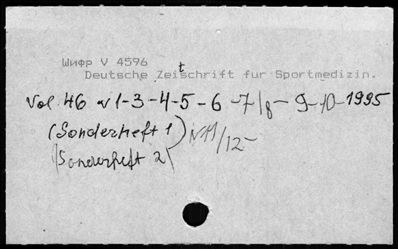 Шифр V 4596
Deutsche Zeitschrift fur Sportmedizin.
Vol. 46 N 1-3-4-5-6-7/8-9-10-1995
(Sonderheft 1) N 11/12-
(Sonderheft 2)